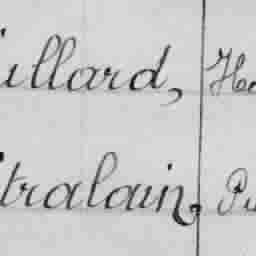 illard, He
tralain, Pu